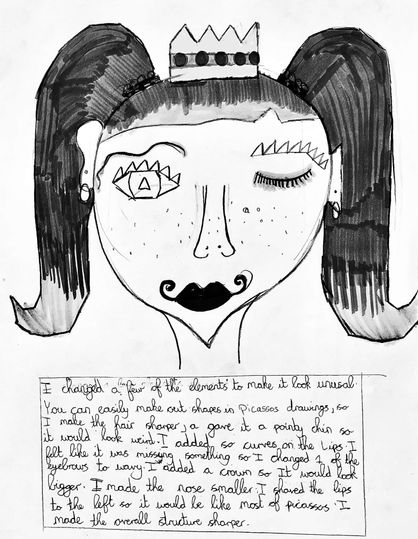 I changed a "few" of the elements to make it look unusal.
You can easily make out shapes in Picassos drawings, so
I make the hair sharper, a gave it a pointy chin so
it would look weird. I added so curves on the lips I
felt like it was missing something so I changed 1 of the
eyebrows to wavy. I added a crown so It would look
bigger. I made the nose smaller. I shaved the lips
to the left so it would be like most of picassos. I
made the overall structure sharper.